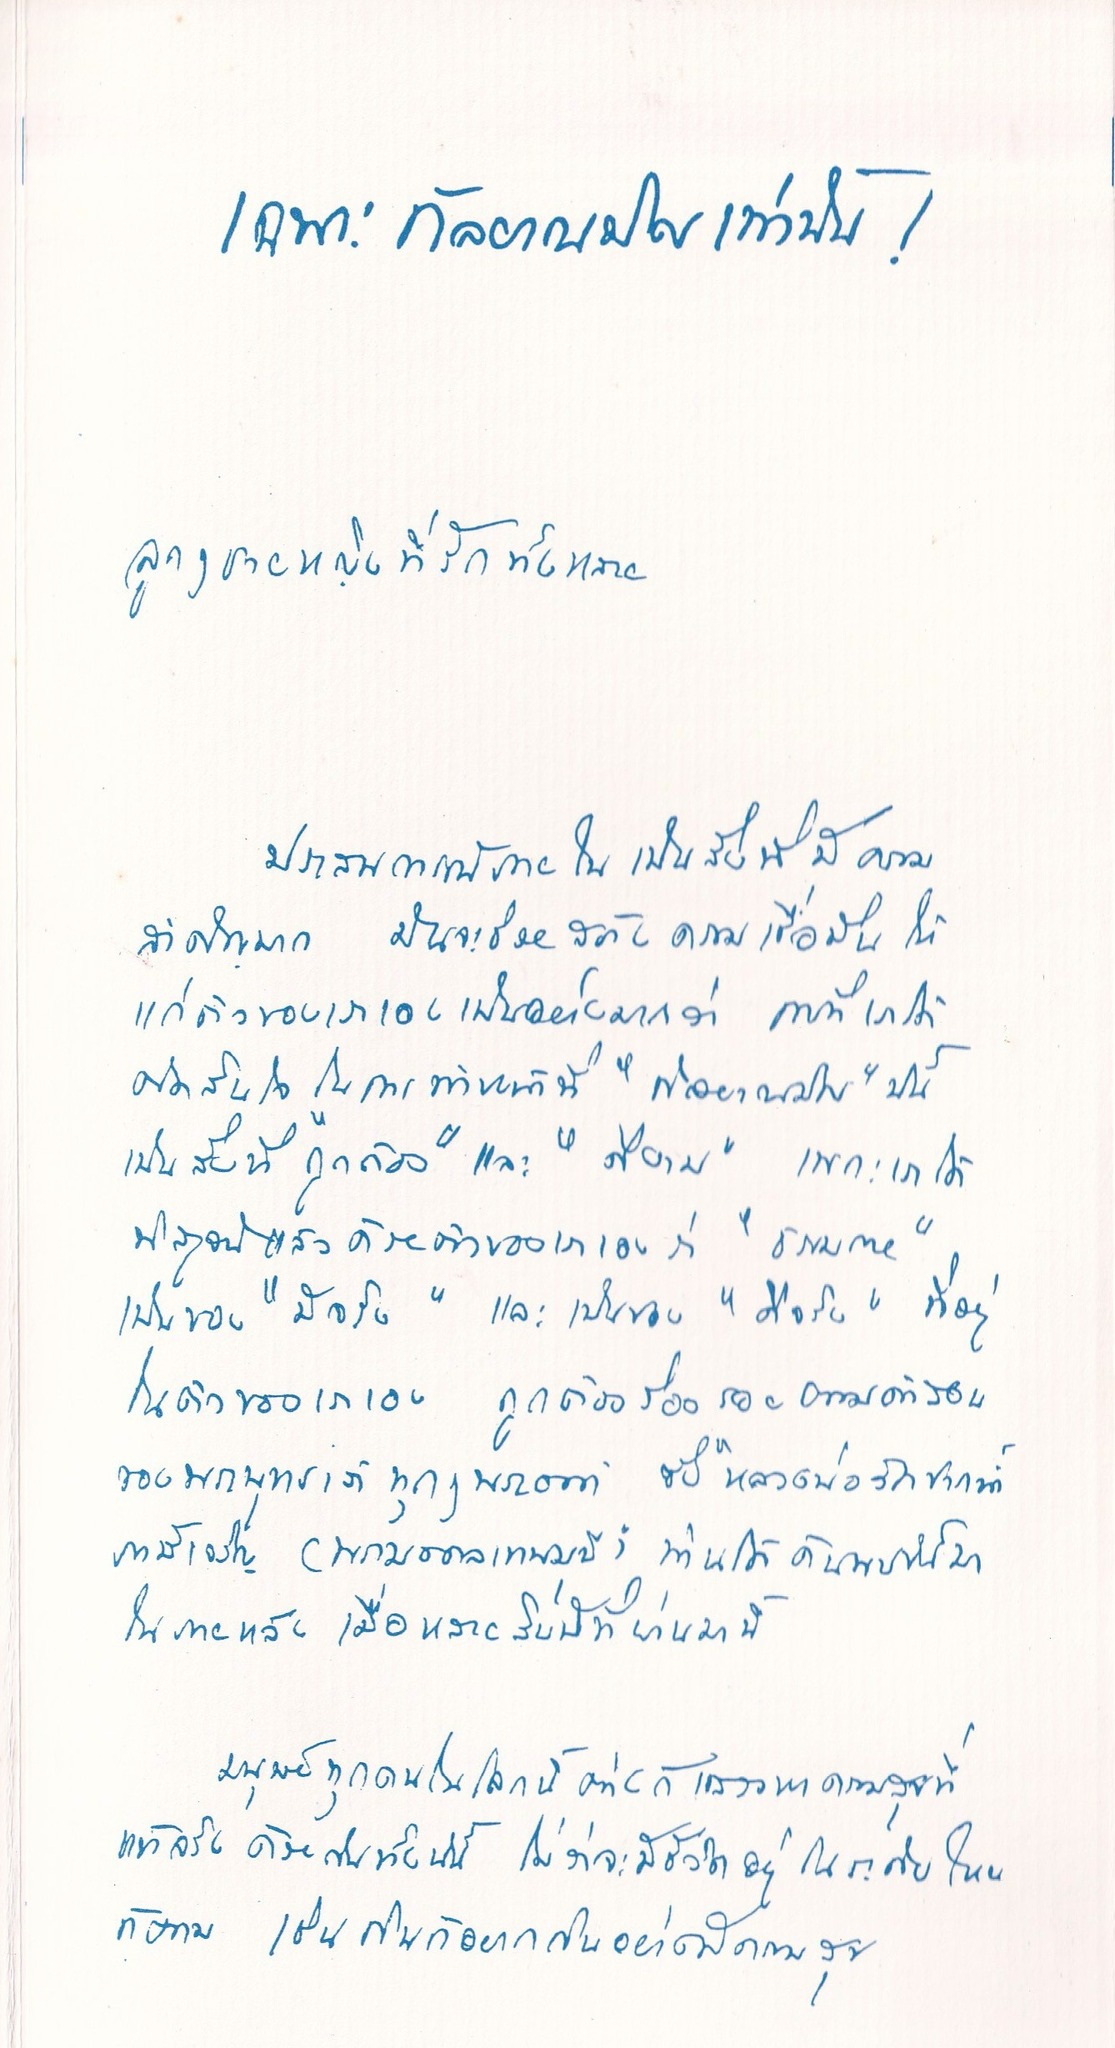 เฉพาะ กัลยาณมิตรเท่านั้น!
ลูกๆชายหญิงที่รักทั้งหลาย
ประสบการณ์ภายใน เป็นสิ่งที่มีความ
สำคัญมาก มันจะช่วยสร้างความเชื่อมั่น ให้
แก่ตัวของเราเองเป็นอย่างมากว่า การที่เราได้
ตัดสินใจ ในการทำหน้าที่ "กัลยาณมิตร" นั้น
เป็นสิ่งที่ "ถูกต้อง" และ "ดีงาม" เพราะเราได้
พิสูจน์แล้วด้วยตัวของเราเองว่า "ธรรมกาย"
เป็นของ "มีจริง" และเป็นของ "ดีจริง" ที่อยู่
ในตัวของเราเอง ถูกต้องร่องรอยตามคำสอน
ของพระพุทธเจ้าทุกๆพระองค์ ซึ่งหลวงพ่อวัดปากน้ำ
ภาษีเจริญ (พระมงคลเทพมุนี) ท่านได้ค้นพบขึ้นมา
ในภายหลัง เมื่อหลายสิบปีที่ผ่านมานี้
มนุษย์ทุกคนในโลกนี้ ต่างก็แสวงหาความสุขที่
แท้จริง ด้วยกันทั้งนั้น ไม่ว่าจะมีชีวิตอยู่ในระดับไหน
ก็ตาม เช่น กินก็อยากกินอย่างมีความสุข